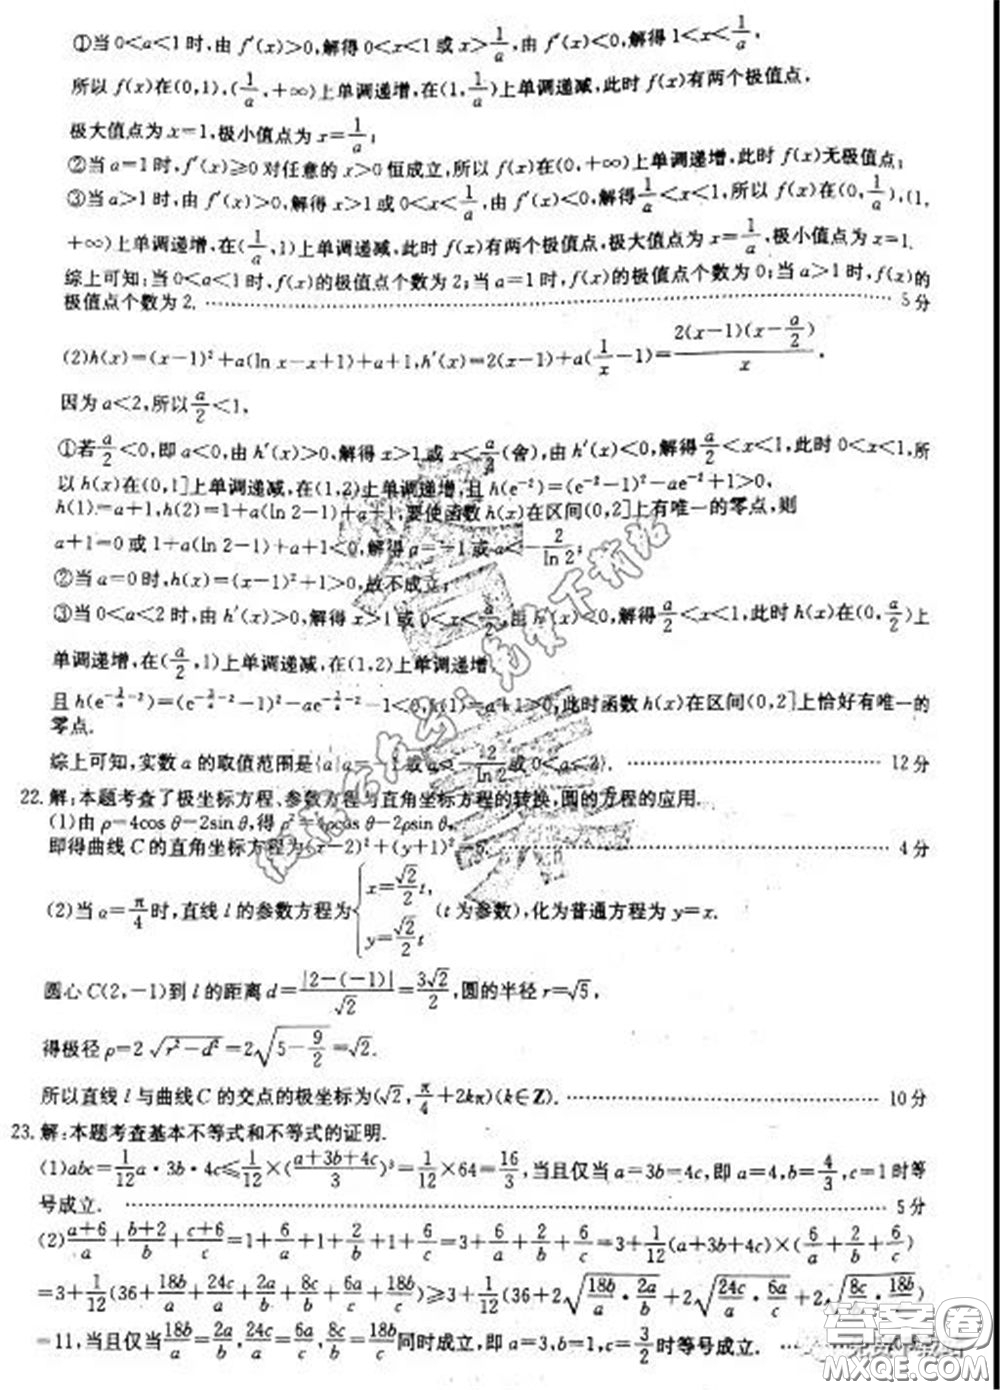 ①当 0<a<1 时,由 f′(x)>0,解得 0<x<1 或 x>1/a,由 f′(x)<0,解得 1<x<1/a,
所以 f(x)在(0,1),(1/a,+∞)上单调递增,在(1,1/a)上单调递减,此时 f(x)有两个极值点,
极大值点为 x=1,极小值点为 x=1/a;
②当 a=1 时,f′(x)≥0 对任意的 x>0 恒成立,所以 f(x)在(0,+∞)上单调递增,此时 f(x)无极值点;
③当 a>1 时,由 f′(x)>0,解得 x>1 或 0<x<1/a,由 f′(x)<0,解得 1/a<x<1,所以 f(x)在(0,1/a),(1,
+∞)上单调递增,在(1/a,1)上单调递减,此时 f(x)有两个极值点,极大值点为 x=1/a,极小值点为 x=1.
综上可知:当 0<a<1 时,f(x)的极值点个数为 2;当 a=1 时,f(x)的极值点个数为 0;当 a>1 时,f(x)的
极值点个数为 2. ………… 5 分
(2)h(x)=(x-1)²+a(ln x-x+1)+a+1,h′(x)=2(x-1)+a(1/x-1)=2(x-1)(x-a/2)/x,
因为 a<2,所以 a/2<1,
①若 a/2<0,即 a<0,由 h′(x)>0,解得 x>1 或 x<a/2(舍),由 h′(x)<0,解得 a/2<x<1,此时 0<x<1,所
以 h(x)在(0,1]上单调递减,在(1,2)上单调递增,且 h(e⁻²)=(e⁻²-1)²-ae⁻²+1>0,
h(1)=a+1,h(2)=1+a(ln 2-1)+a+1,要使函数 h(x)在区间(0,2]上有唯一的零点,则
a+1=0 或 1+a(ln 2-1)+a+1<0,解得 a=-1 或 a<-2/ln 2;
②当 a=0 时,h(x)=(x-1)²+1>0,故不成立;
③当 0<a<2 时,由 h′(x)>0,解得 x>1 或 0<x<a/2,由 h′(x)<0,解得 a/2<x<1,此时 h(x)在(0,a/2)上
单调递增,在(a/2,1)上单调递减,在(1,2)上单调递增,
-1<0,h(1)=a+1>0,此时函数 h(x)在区间(0,2]上恰好有唯一的
零点.
综上可知,实数 a 的取值范围是{a|a=-1 或 a<-2/ln 2 或 0<a<2}. ………… 12 分
22. 解:本题考查了极坐标方程、参数方程与直角坐标方程的转换,圆的方程的应用.
(1)由 ρ=4cos θ-2sin θ,得 ρ²=4ρcos θ-2ρsin θ,
即得曲线 C 的直角坐标方程为(x-2)²+(y+1)²=5. ………… 4 分
(2)当 α=π/4 时,直线 l 的参数方程为 { x=√2/2 t, y=√2/2 t (t 为参数),化为普通方程为 y=x.
圆心 C(2,-1)到 l 的距离 d=|2-(-1)|/√2=3√2/2,圆的半径 r=√5,
得极径 ρ=2√(r²-d²)=2√(5-9/2)=√2.
所以直线 l 与曲线 C 的交点的极坐标为(√2,π/4+2kπ)(k∈Z). ………… 10 分
23. 解:本题考查基本不等式和不等式的证明.
(1)abc=1/12 a·3b·4c≤1/12×((a+3b+4c)/3)³=1/12×64=16/3,当且仅当 a=3b=4c,即 a=4,b=4/3,c=1 时等
号成立. ………… 5 分
(2)(a+6)/a+(b+2)/b+(c+6)/c=1+6/a+1+2/b+1+6/c=3+6/a+2/b+6/c=3+1/12(a+3b+4c)×(6/a+2/b+6/c)
=3+1/12(36+18b/a+24c/a+2a/b+8c/b+6a/c+18b/c)≥3+1/12(36+2√(18b/a·2a/b)+2√(24c/a·6a/c)+2√(8c/b·18b/c))
=11,当且仅当 18b/a=2a/b,24c/a=6a/c,8c/b=18b/c 同时成立,即 a=3,b=1,c=3/2 时等号成立. …
答案圈
MXQE.COM